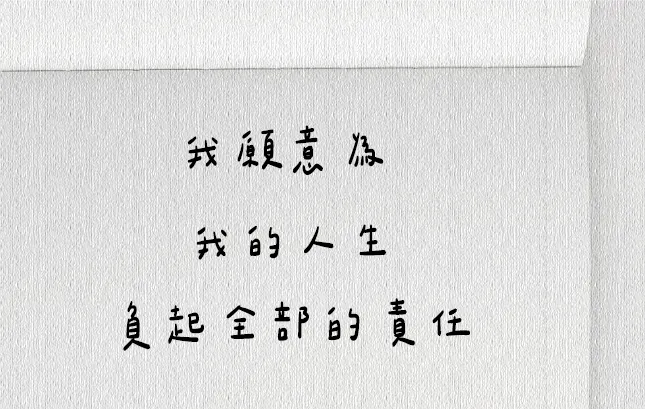 我願意為
我的人生
負起全部的責任